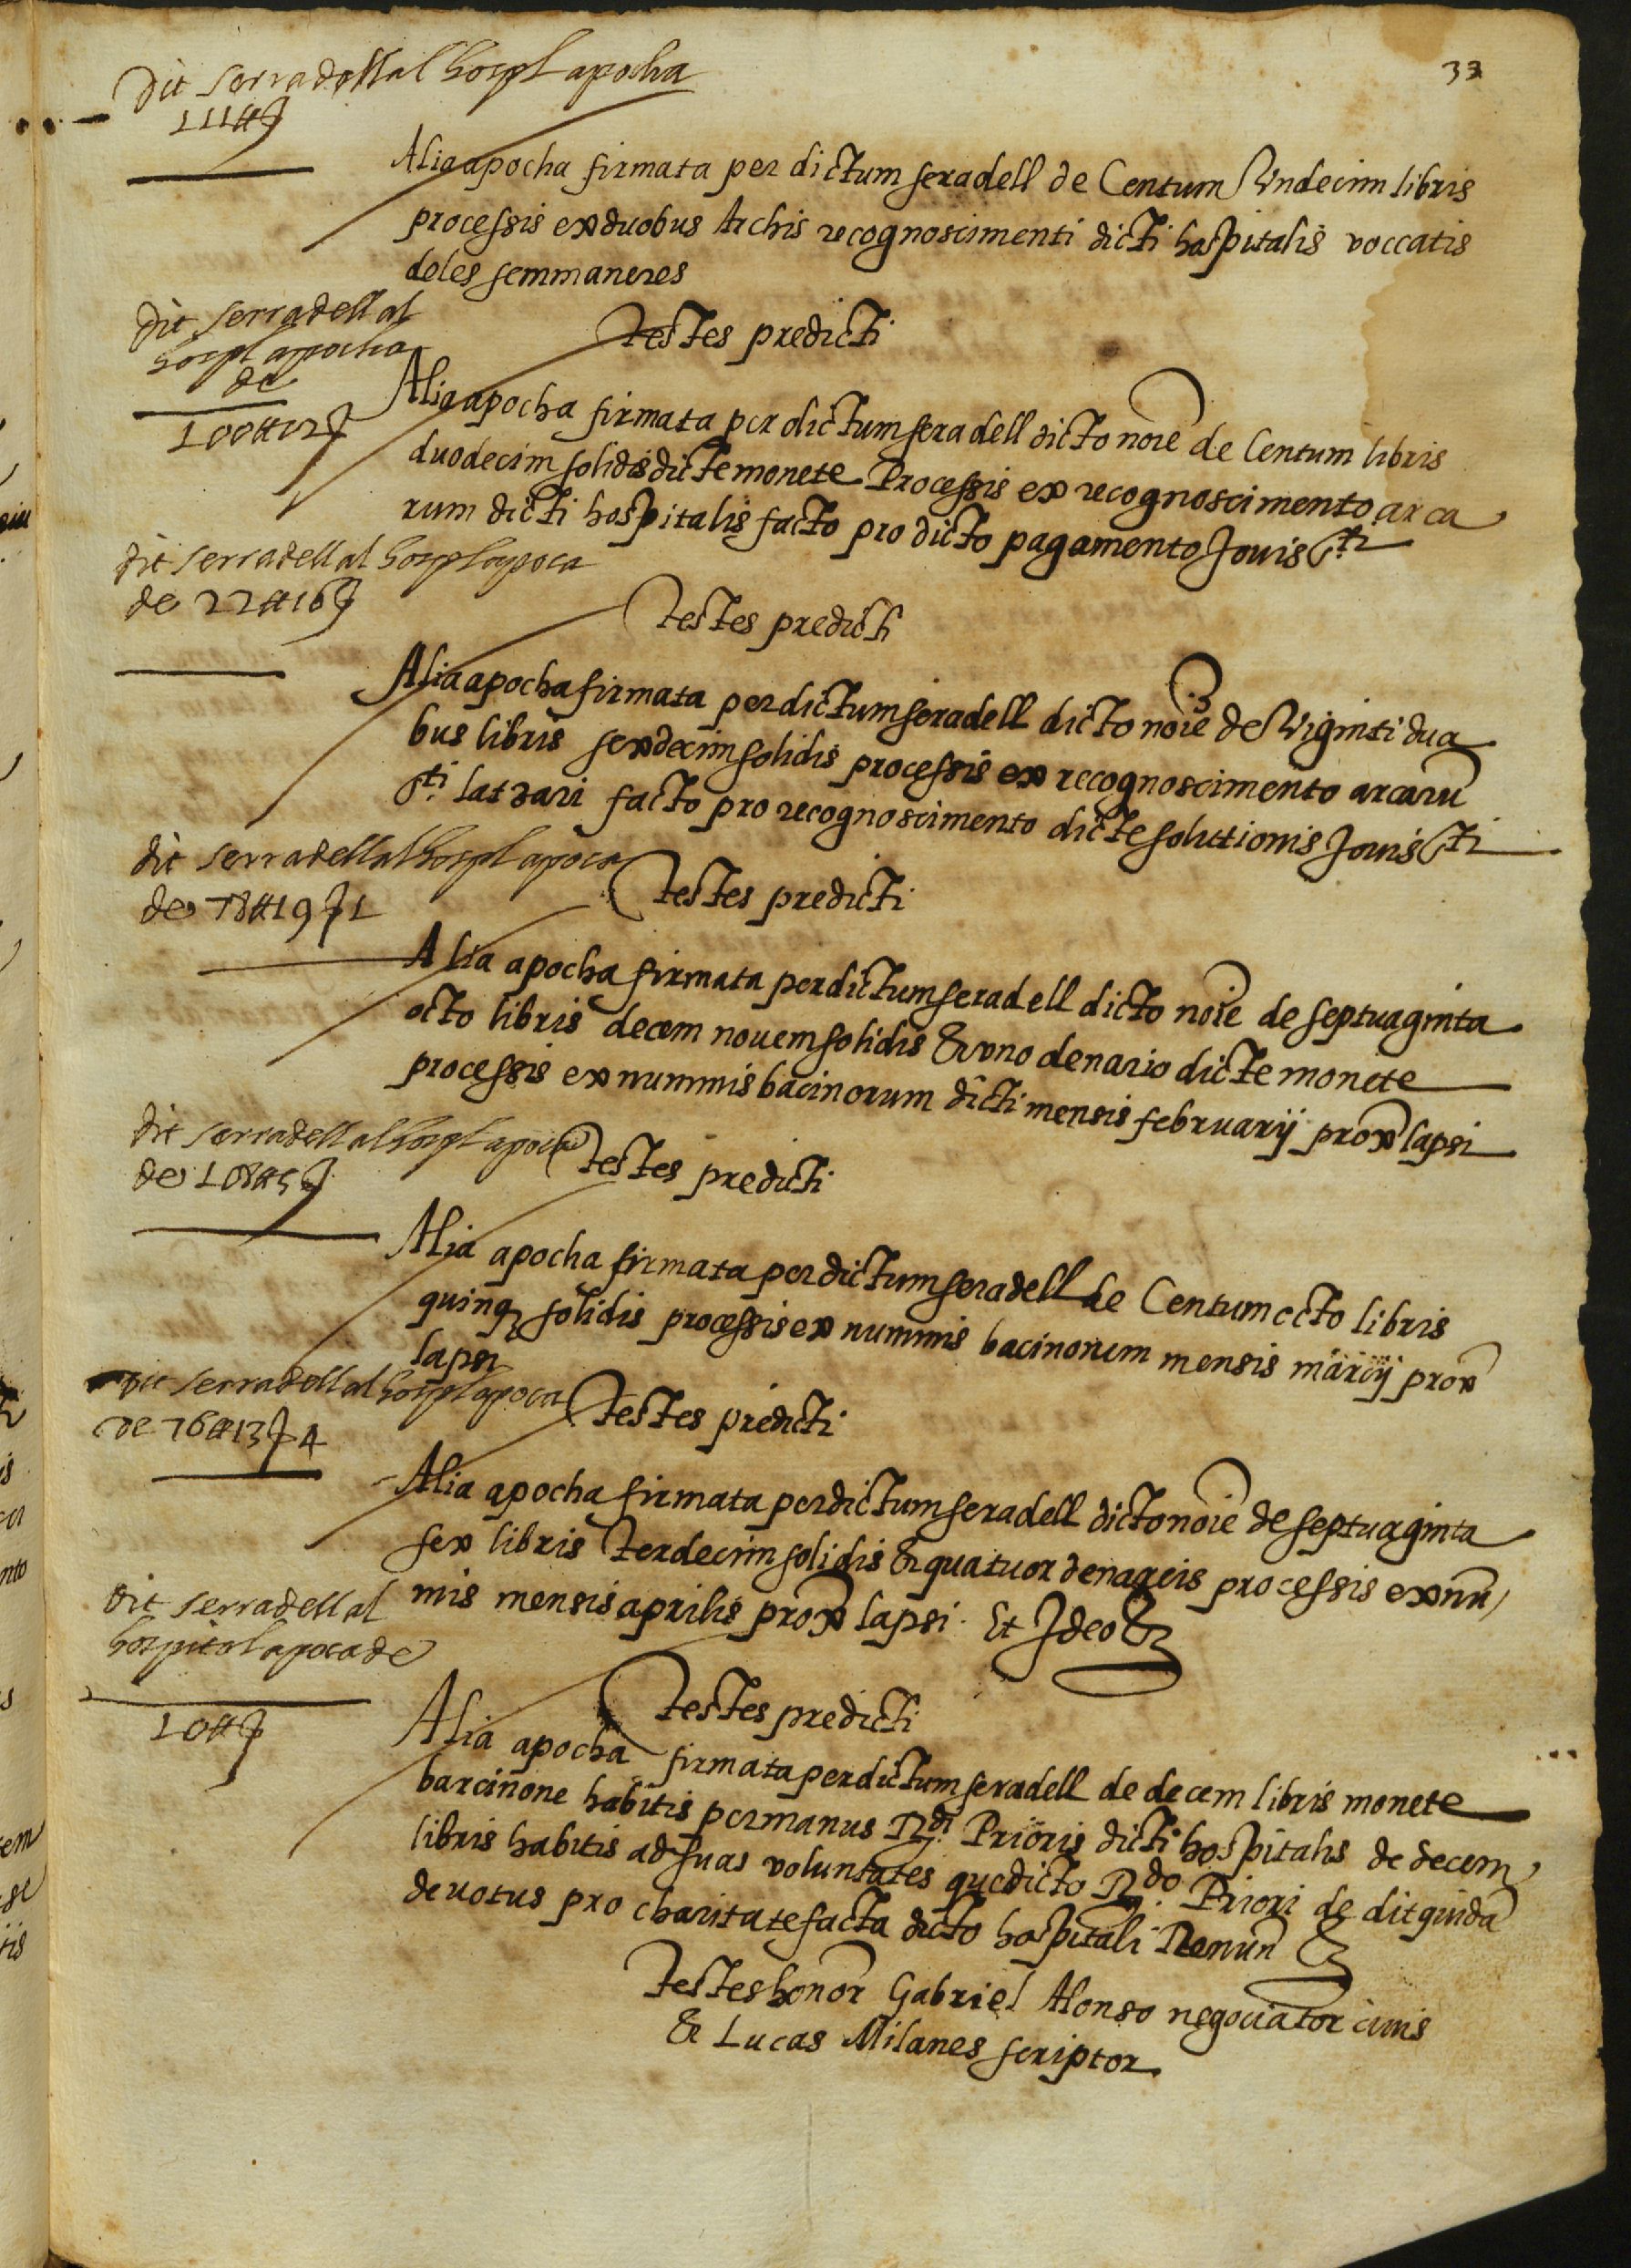 33
dit serradell al hospl apocha
111 ₶ ₰
Alia apocha firmata per dictum seradell de Centum Vndecim libris
processis ex duobus Archis recognoscimenti dicti hospitalis voccatis
deles semmaneres
testes predicti
dit serradell al
hospl apocha
de
100 ₶ 12 ₰
Alia apocha firmata per dictum seradell dicto noīe de Centum libris
duodecim solidis dicte monete Processis ex recognoscimento arca
rum dicti hospitalis facto pro dicto pagamento Jouis Sti
testes predicti
dit serradell al hospl apoca
de 22 ₶ 16 ₰
Alia apocha firmata per dictum seradell dicto noīe de Viginti dua
bus libris sexdecim solidis processis ex recognoscimento arcarū
Sti. latzari facto pro recognoscimento dicte solutionis Jouis Sti
testes predicti
dit serradell al hospl apoca
de 78 ₶ 19 ₰ 1
Alia apocha firmata per dictum seradell dicto noīe de septuaginta
octo libris decem nouem solidis & vno denario dicte monete
processis ex nummis bacinorum dicti mensis februarij prox̄ lapsi
testes predicti
dit serradell al hospl apoca
de 108 ₶ 5 ₰
Alia apocha firmata per dictum seradell de Centum octo libris
quinqꝫ solidis processis ex nummis bacinorum mensis marcij prox̄
lapsi
testes predicti
dit serradell al hospl apoca
de 76 ₶ 13 ₰ 4
Alia apocha firmata per dictum seradell dicto noīe de septuaginta
sex libris terdecim solidis & quatuor denariis processis ex nū
mis mensis aprilis prox̄ lapsi. Et Ideo &
testes predicti
dit serradell al
hospital apoca de
10 ₶ ₰
Alia apocha firmata per dictum seradell de decem libris monete
barcinone habitis per manus Rdi. Prioris dicti hospitalis de decem
libris habitis ad suas voluntates que dicto Rdo. Priori dedit quidā
deuotus pro charitate facta dicto hospitali Renun̄ &
Testes honor̄ Gabriel Alonso negociator ciuis
& Lucas Milanes scriptor